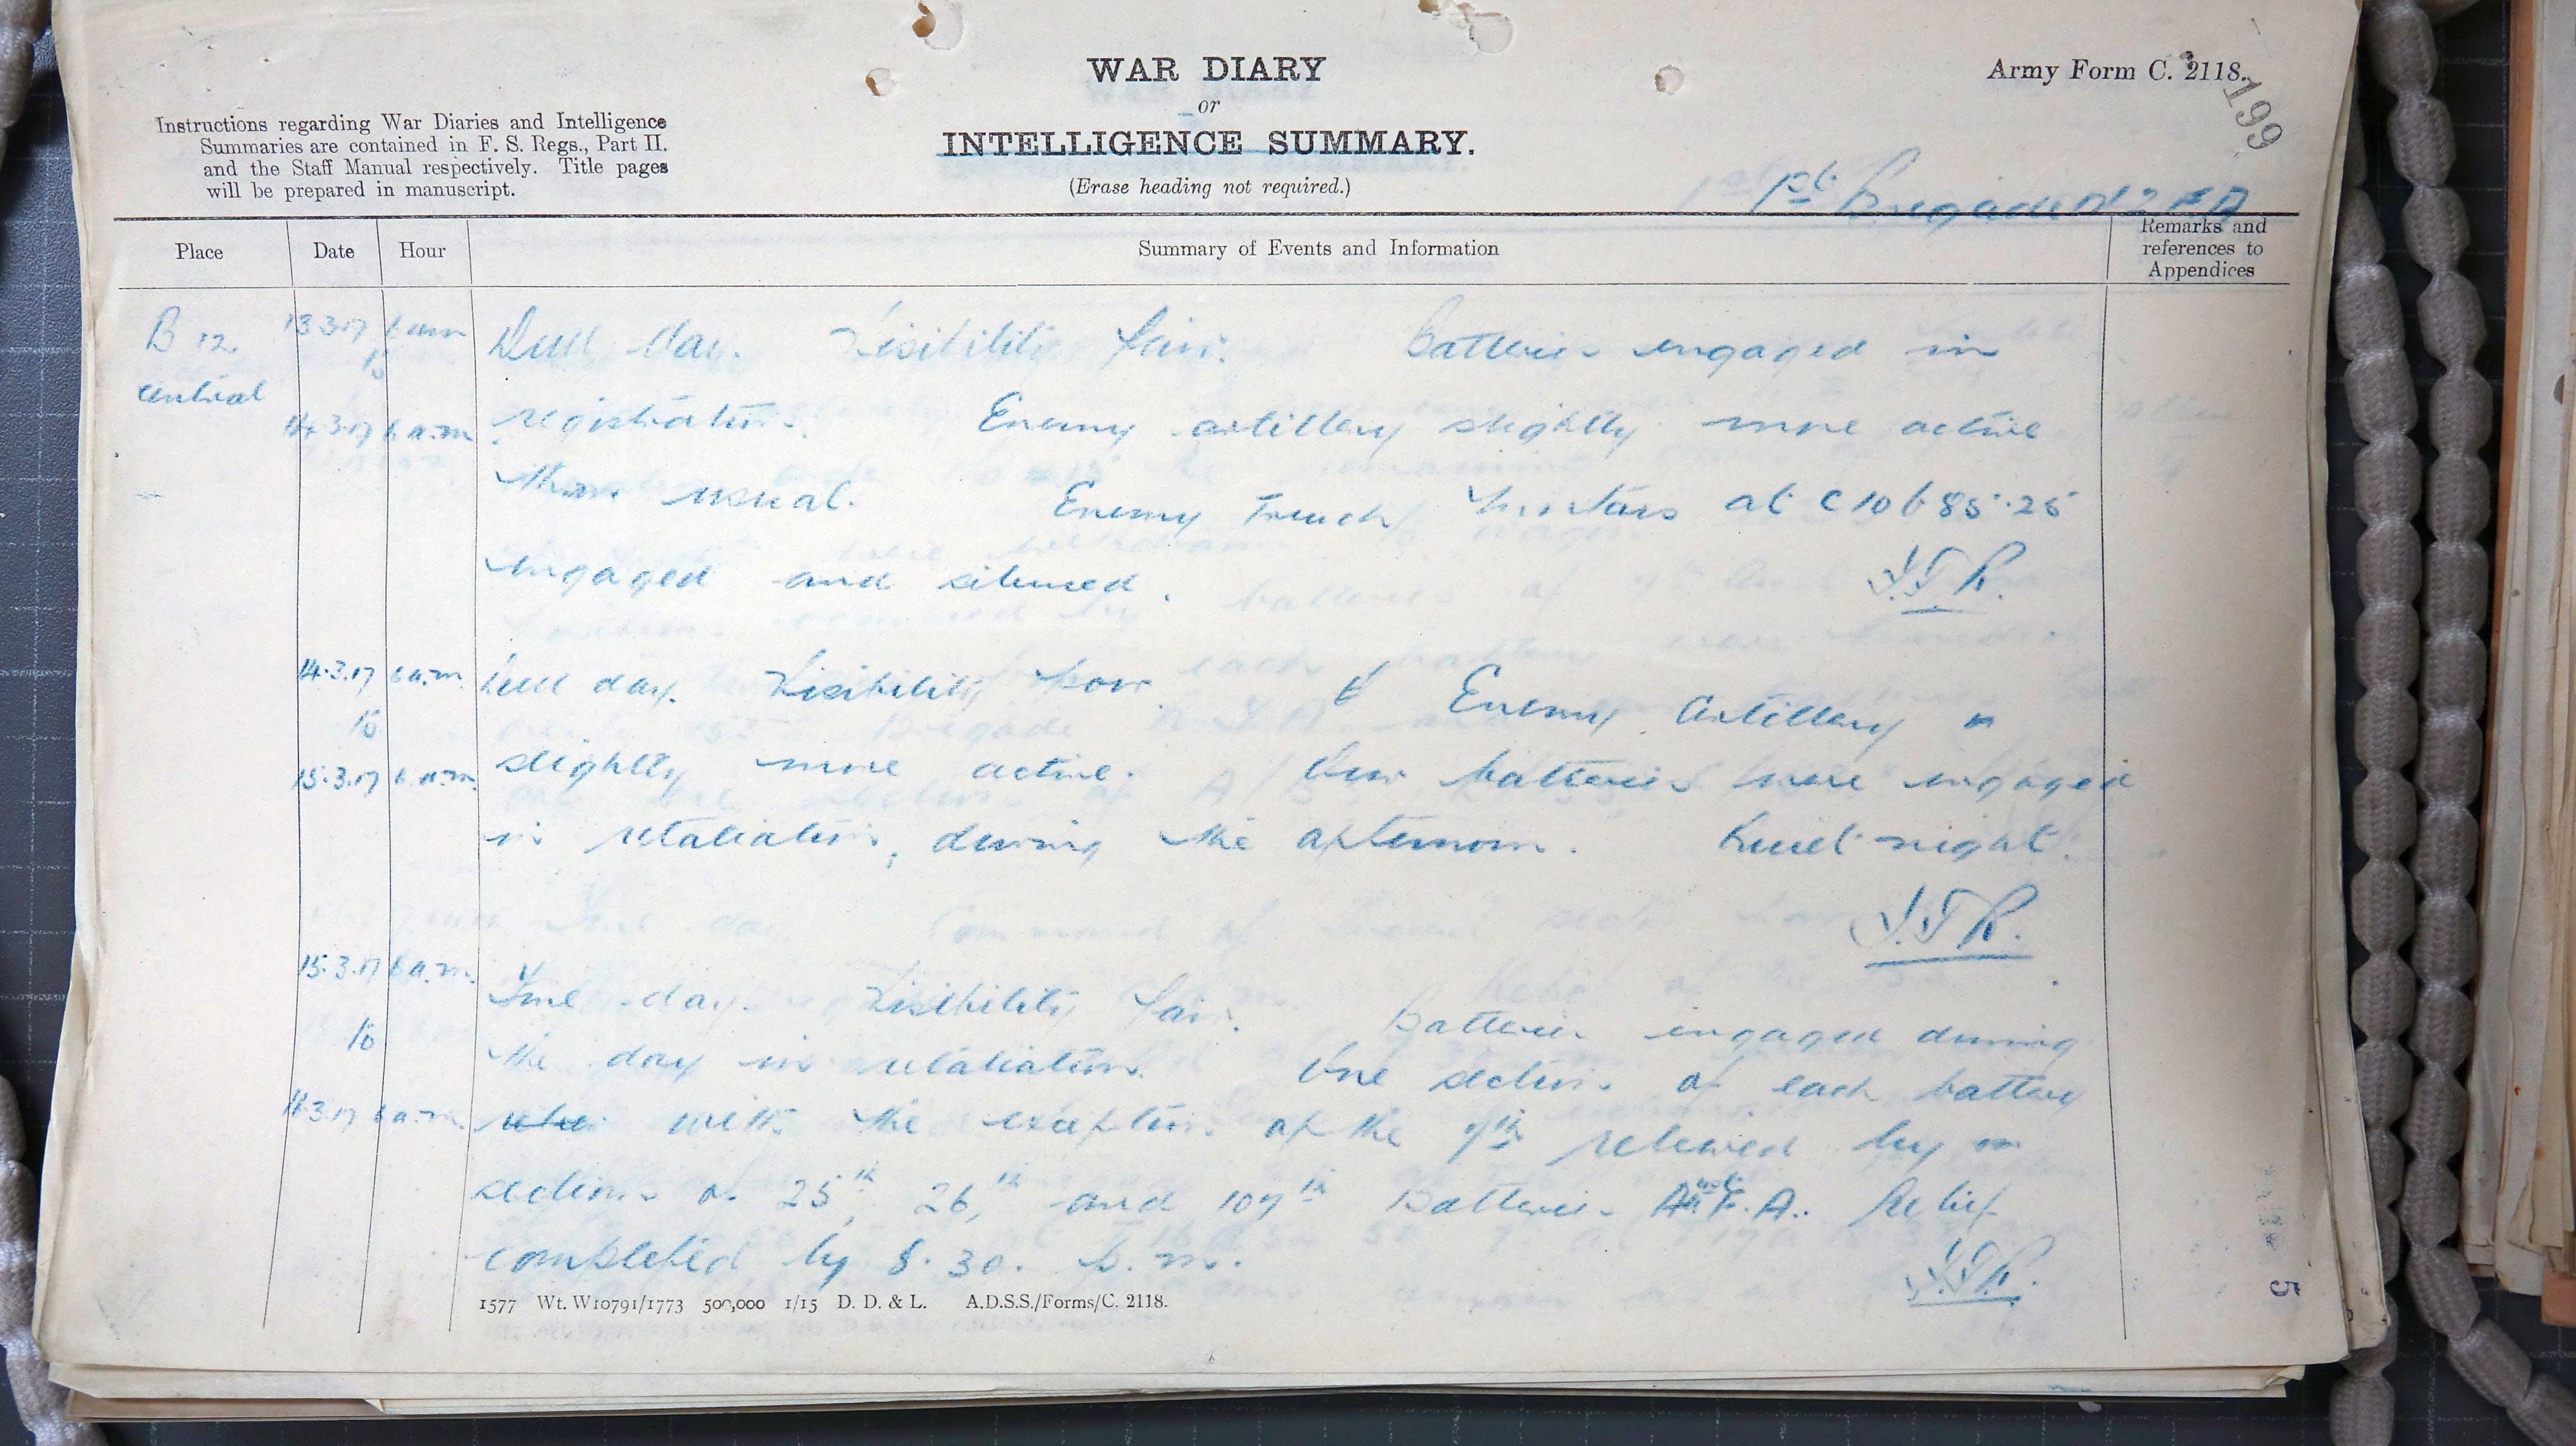 WAR DIARY
or
INTELLIGENCE SUMMARY.
(Erase heading not required.)
Army Form C. 2118.
199
Instructions regarding War Diaries and Intelligence
Summaries are contained in F. S. Regs., Part II.
and the Staff Manual respectively. Title pages
will be prepared in manuscript.
1st Brigade NZFA
Place
Date
Hour
Summary of Events and Information
Remarks and
references to
Appendices
B 12 13.3.17 6 am Dull day. Visibility fair. Batteries engaged in
to
central
14.3.17 6 a.m. registration. Enemy artillery slightly more active
than usual. Enemy Trench Mortars at C 10 b 85.25
engaged and silenced.
14.3.17 6 a.m. Dull day. Visibility poor. Enemy Artillery
to
slightly more active. Our batteries were engaged
15.3.17 6 a.m.
in retaliation, during the afternoon. Quiet night.
15.3.17 6 a.m. Fine day. Visibility fair. Batteries engaged during
to
the day in retaliation. One section of each battery
16.3.17 6 a.m. with the exception of the 7th relieved by
sections of 25th, 26th and 107th Batteries A.F.A. Relief
completed by 8.30. p.m.
1577 Wt. W10791/1773 500,000 1/15 D. D. & L. A.D.S.S./Forms/C. 2118.
5